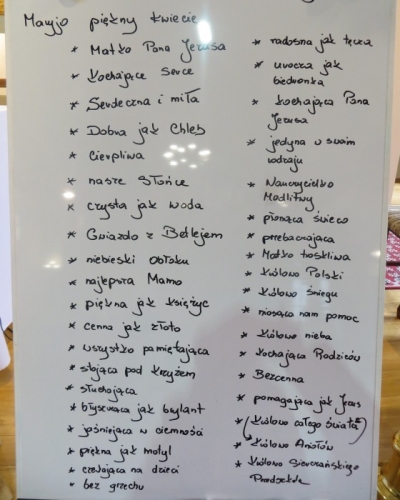 Maryjo piękny kwiecie
* Matko Pana Jezusa
* Kochające Serce
* Serdeczna i miła
* Dobra jak Chleb
* Cierpliwa
* nasze Słońce
* czysta jak woda
* Gwiazdo z Betlejem
* niebieski obłoku
* najlepsza Mamo
* piękna jak księżyc
* cenna jak złoto
* wszystko pamiętająca
* stojąca pod Krzyżem
* słuchająca
* błyszcząca jak brylant
* jaśniejąca w ciemności
* piękna jak motyl
* czekająca na dzieci
* bez grzechu
* radosna jak tęcza
* urocza jak
biedronka
* kochająca Pana
Jezusa
* jedyna w swoim
rodzaju
* Nauczycielko
Modlitwy
* płonąca świeco
* przebaczająca
* Matko troskliwa
* Królowo Polski
* Królowo śniegu
* niosąca nam pomoc
* Królowo nieba
* Kochająca Rodziców
* Bezcenna
* pomagająca jak Jezus
* (Królowo całego świata)
* Królowo Aniołów
* Królowo
Przedszkola